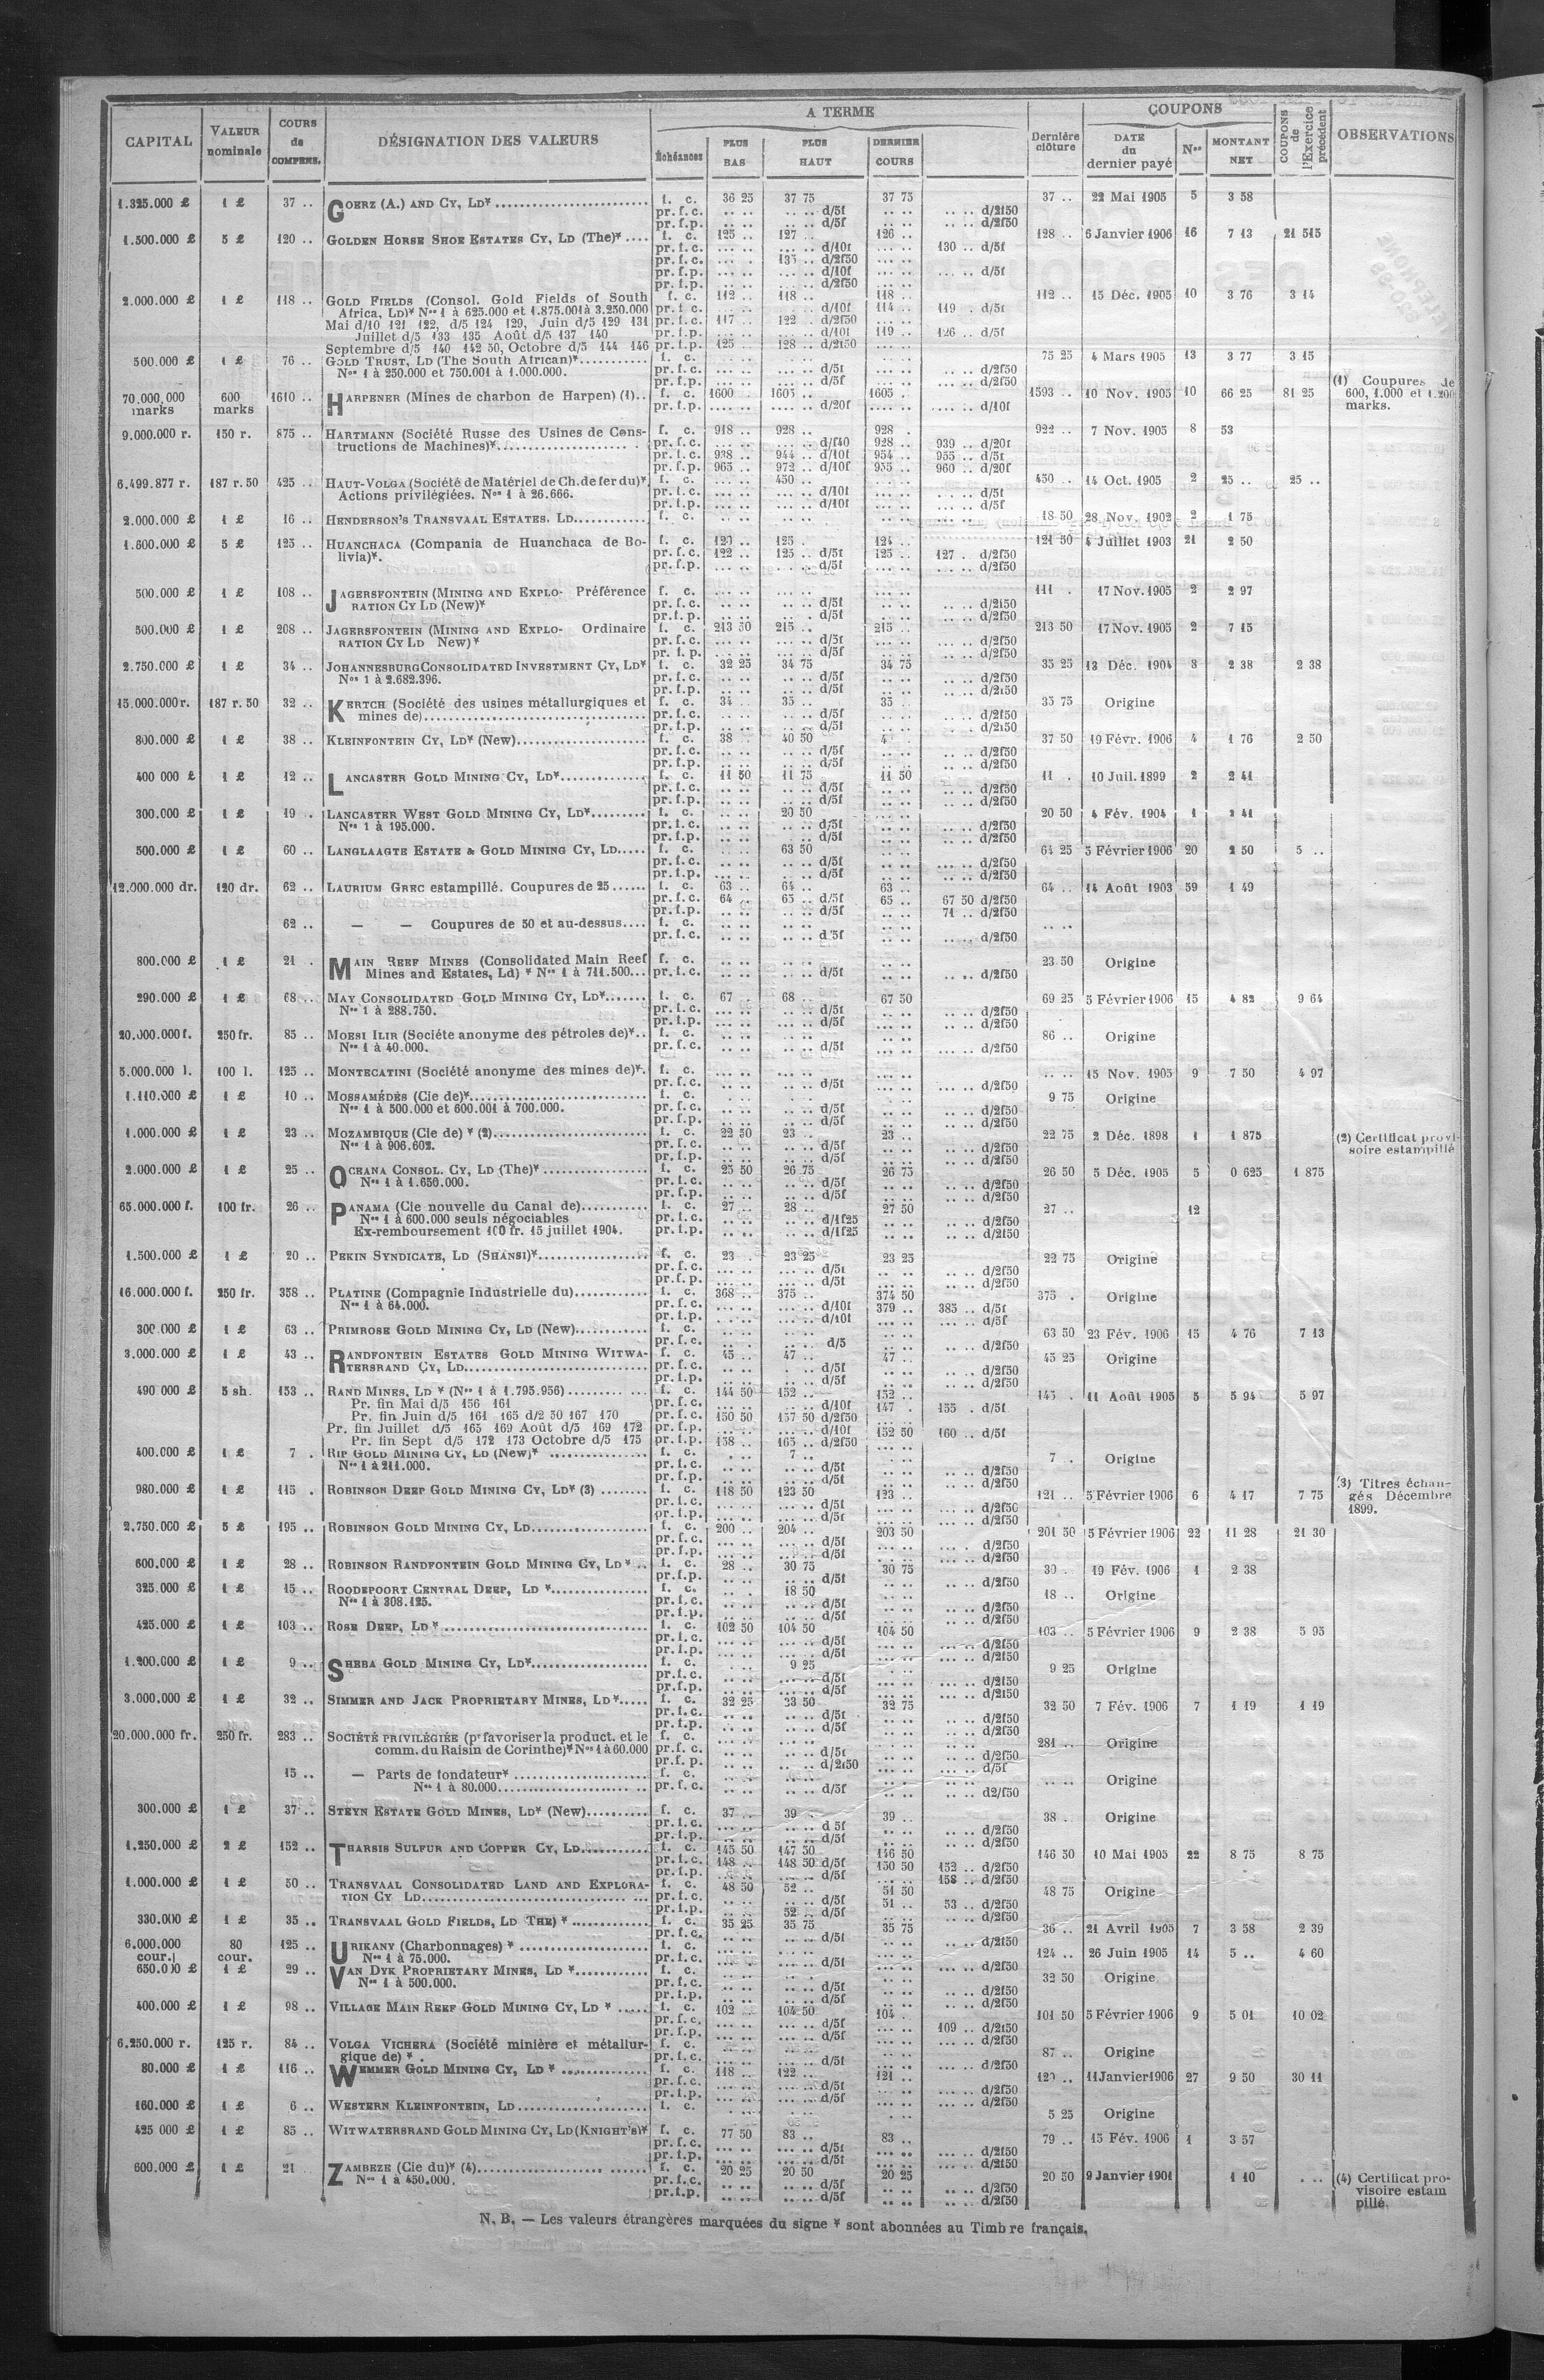 CAPITAL | VALEUR nominale | COURS de COMPENS. | DÉSIGNATION DES VALEURS | A TERME | Dernière clôture | COUPONS | COUPONS de l'Exercice précédent | OBSERVATIONS
Échéances | PLUS BAS | PLUS HAUT | DERNIER COURS | DATE du dernier payé | Nos | MONTANT NET
1.325.000 £ | 1 £ | 37 .. | GOERZ (A.) AND CY, LD* | f. c. | 36 25 | 37 75 | 37 75 | 37 .. | 22 Mai 1905 | 5 | 3 58
pr. f. c. .. .. d/5f .. .. d/2f50
pr. f. p. .. .. d/5f .. .. d/2f50
1.500.000 £ | 5 £ | 120 .. | GOLDEN HORSE SHOE ESTATES CY, LD (The)* | f. c. | 125 .. | 127 .. | 126 .. | 128 .. | 6 Janvier 1906 | 16 | 7 13 | 21 515
pr. f. c. d/10f 130 .. d/5f
pr. f. c. 135 .. d/2f50
pr. f. p. d/10f d/5f
pr. f. p. d/2f50
2.000.000 £ | 1 £ | 118 .. | GOLD FIELDS (Consol. Gold Fields of South | f. c. | 112 .. | 118 .. | 118 .. | 112 .. | 15 Déc. 1905 | 10 | 3 76 | 3 14
Africa, LD)* Nos 1 à 625.000 et 1.875.001 à 3.250.000 pr. f. c. d/10f 114 .. 119 . d/5f
Mai d/10 121 122, d/5 124 129, Juin d/5 129 131 pr. f. c. 117 122 . d/2f50
Juillet d/5 133 135 Août d/5 137 140 pr. f. p. d/10f 119 .. 126 .. d/5f
Septembre d/5 140 142 50, Octobre d/5 144 146 pr. f. p. 125 128 .. d/2f50
500.000 £ | 1 £ | 76 .. | GOLD TRUST, LD (The South African)* | f. c. | 75 25 | 4 Mars 1905 | 13 | 3 77 | 3 15
Nos 1 à 250.000 et 750.001 à 1.000.000. pr. f. c. d/5f d/2f50
pr. f. p. d/5f d/2f50
70.000.000 marks | 600 marks | 1610 .. | HARPENER (Mines de charbon de Harpen) (1) | f. c. | 1600 .. | 1605 .. | 1605 . | 1593 .. | 10 Nov. 1905 | 10 | 66 25 | 81 25 | (1) Coupures de 600, 1.000 et 1.200 marks.
pr. f. p. d/20f d/10f
9.000.000 r. | 150 r. | 875 .. | HARTMANN (Société Russe des Usines de Cons- | f. c. | 918 .. | 928 .. | 928 . | 922 .. | 7 Nov. 1905 | 8 | 53
tructions de Machines)* pr. f. c. d/f40 928 .. 939 .. d/20f
pr. f. c. 938 .. 944 .. d/10f 954 .. 955 .. d/5f
pr. f. p. 965 .. 972 .. d/10f 955 .. 960 .. d/20f
6.499.877 r. | 187 r. 50 | 425 .. | HAUT-VOLGA (Société de Matériel de Ch. de fer du)* | f. c. | 450 .. | 450 .. | 14 Oct. 1905 | 2 | 25 .. | 25 ..
Actions privilégiées. Nos 1 à 26.666. pr. f. c. d/10f d/5f
pr. f. p. d/10f d/5f
2.000.000 £ | 1 £ | 16 .. | HENDERSON'S TRANSVAAL ESTATES. LD | f. c. | 18 50 | 28 Nov. 1902 | 2 | 1 75
1.600.000 £ | 5 £ | 125 .. | HUANCHACA (Compania de Huanchaca de Bo- | f. c. | 120 .. | 125 . | 124 .. | 121 50 | 4 Juillet 1903 | 21 | 2 50
livia)*. pr. f. c. 122 .. 125 .. d/5f 125 .. 127 . d/2f50
pr. f. p. d/5f d/2f50
500.000 £ | 1 £ | 108 .. | JAGERSFONTEIN (MINING AND EXPLO- Préférence | f. c. | 111 . | 17 Nov. 1905 | 2 | 2 97
RATION CY LD (New)* pr. f. c. d/5f d/2f50
pr. f. p. d/5f d/2f50
500.000 £ | 1 £ | 208 .. | JAGERSFONTEIN (MINING AND EXPLO- Ordinaire | f. c. | 213 50 | 215 . | 215 .. | 213 50 | 17 Nov. 1905 | 2 | 7 15
RATION CY LD New)* pr. f. c. d/5f d/2f50
pr. f. p. d/5f d/2f50
2.750.000 £ | 1 £ | 34 .. | JOHANNESBURG CONSOLIDATED INVESTMENT CY, LD* | f. c. | 32 25 | 34 75 | 34 75 | 35 25 | 13 Déc. 1904 | 3 | 2 38 | 2 38
Nos 1 à 2.682.396. pr. f. c. d/5f d/2f50
pr. f. p. d/5f d/2f50
15.000.000 r. | 187 r. 50 | 32 .. | KERTCH (Société des usines métallurgiques et | f. c. | 34 .. | 35 .. | 35 .. | 35 75 | Origine
mines de) pr. f. c. d/5f d/2f50
pr. f. p. d/5f d/2f50
800.000 £ | 1 £ | 38 .. | KLEINFONTEIN CY, LD* (New) | f. c. | 38 .. | 40 50 | 37 50 | 19 Févr. 1906 | 4 | 1 76 | 2 50
pr. f. c. d/5f d/2f50
pr. f. p. d/5f d/2f50
400 000 £ | 1 £ | 12 .. | LANCASTER GOLD MINING CY, LD* | f. c. | 11 50 | 11 75 | 11 50 | 11 . | 10 Juil. 1899 | 2 | 2 41
pr. f. c. d/5f d/2f50
pr. f. p. d/5f d/2f50
300.000 £ | 1 £ | 19 .. | LANCASTER WEST GOLD MINING CY, LD* | f. c. | 20 50 | 20 50 | 4 Fév. 1904 | 1 | 2 41
Nos 1 à 195.000. pr. f. c. d/5f d/2f50
pr. f. p. d/5f d/2f50
500.000 £ | 1 £ | 60 .. | LANGLAAGTE ESTATE & GOLD MINING CY, LD | f. c. | 63 50 | 64 25 | 5 Février 1906 | 20 | 2 50 | 5 ..
pr. f. c. d/5f d/2f50
pr. f. p. d/5f d/2f50
12.000.000 dr. | 120 dr. | 62 .. | LAURIUM GREC estampillé. Coupures de 25 | f. c. | 63 .. | 64 .. | 63 .. | 64 .. | 14 Août 1903 | 59 | 1 49
pr. f. c. 64 .. 65 .. d/5f 65 .. 67 50 d/2f50
pr. f. p. d/5f 71 .. d/2f50
62 .. | — — Coupures de 50 et au-dessus | f. c.
pr. f. c. d/5f d/2f50
800.000 £ | 1 £ | 21 . | MAIN REEF MINES (Consolidated Main Reef | f. c. | 23 50 | Origine
Mines and Estates, Ld) * Nos 1 à 711.500 pr. f. c. d/5f d/2f50
290.000 £ | 1 £ | 68 .. | MAY CONSOLIDATED GOLD MINING CY, LD* | f. c. | 67 . | 68 .. | 67 50 | 69 25 | 5 Février 1906 | 15 | 4 82 | 9 64
Nos 1 à 288.750. pr. f. c. d/5f d/2f50
pr. f. p. d/5f d/2f50
20.000.000 f. | 250 fr. | 85 .. | MOESI ILIR (Société anonyme des pétroles de)* | f. c. | 86 .. | Origine
Nos 1 à 40.000. pr. f. c. d/5f d/2f50
5.000.000 l. | 100 l. | 125 .. | MONTECATINI (Société anonyme des mines de)* | f. c. | 15 Nov. 1905 | 9 | 7 50 | 4 97
pr. f. c. d/5f d/2f50
1.110.000 £ | 1 £ | 10 .. | MOSSAMÉDÈS (Cie de)* | f. c. | 9 75 | Origine
Nos 1 à 500.000 et 600.001 à 700.000. pr. f. c. d/5f d/2f50
pr. f. p. d/5f d/2f50
1.000.000 £ | 1 £ | 23 .. | MOZAMBIQUE (Cie de) * (2) | f. c. | 22 50 | 23 .. | 23 .. | 22 75 | 2 Déc. 1898 | 1 | 1 875 | (2) Certificat provisoire estampillé
Nos 1 à 906.602. pr. f. c. d/5f d/2f50
pr. f. p. d/5f d/2f50
2.000.000 £ | 1 £ | 25 .. | OCEANA CONSOL. CY, LD (The)* | f. c. | 25 50 | 26 75 | 26 75 | 26 50 | 5 Déc. 1905 | 5 | 0 625 | 1 875
Nos 1 à 1.650.000. pr. f. c. d/5f d/2f50
pr. f. p. d/5f d/2f50
65.000.000 f. | 100 fr. | 26 .. | PANAMA (Cie nouvelle du Canal de) | f. c. | 27 .. | 28 .. | 27 50 | 27 .. | 12
Nos 1 à 600.000 seuls négociables pr. f. c. d/1f25 d/2f50
Ex-remboursement 100 fr. 15 juillet 1904. pr. f. p. d/1f25 d/2f50
1.500.000 £ | 1 £ | 20 .. | PEKIN SYNDICATE, LD (SHANSI)* | f. c. | 23 .. | 23 25 | 23 25 | 22 75 | Origine
pr. f. c. d/5f d/2f50
pr. f. p. d/5f d/2f50
16.000.000 f. | 250 fr. | 358 .. | PLATINE (Compagnie Industrielle du) | f. c. | 368 .. | 375 .. | 374 50 | 375 . | Origine
Nos 1 à 64.000. pr. f. c. d/10f 379 .. 385 .. d/5f
pr. f. p. d/10f d/5f
300.000 £ | 1 £ | 63 .. | PRIMROSE GOLD MINING CY, LD (New) | f. c. | 63 50 | 23 Fév. 1906 | 15 | 4 76 | 7 13
pr. f. c. d/5 d/2f50
3.000.000 £ | 1 £ | 43 .. | RANDFONTEIN ESTATES GOLD MINING WITWA- | f. c. | 45 .. | 47 .. | 47 .. | 45 25 | Origine
TERSRAND CY, LD pr. f. c. d/5f d/2f50
pr. f. p. d/5f d/2f50
490 000 £ | 5 sh. | 153 .. | RAND MINES, LD * (Nos 1 à 1.795.956) | f. c. | 144 50 | 152 .. | 152 .. | 145 . | 11 Août 1905 | 5 | 5 94 | 5 97
Pr. fin Mai d/5 156 161 pr. f. c. d/10f 147 . 155 . d/5f
Pr. fin Juin d/5 161 165 d/2 50 167 170 pr. f. c. 150 50 157 50 d/2f50
Pr. fin Juillet d/5 165 169 Août d/5 169 172 pr. f. p. d/10f 152 50 160 .. d/5f
Pr. fin Sept d/5 172 173 Octobre d/5 175 pr. f. p. 158 .. 165 .. d/2f50
400.000 £ | 1 £ | 7 . | RIP GOLD MINING CY, LD (New)* | f. c. | 7 .. | 7 . | Origine
Nos 1 à 211.000. pr. f. c. d/5f d/2f50
pr. f. p. d/5f d/2f50
980.000 £ | 1 £ | 115 . | ROBINSON DEEP GOLD MINING CY, LD* (3) | f. c. | 118 50 | 123 50 | 123 .. | 121 .. | 5 Février 1906 | 6 | 4 17 | 7 75 | (3) Titres échangés Décembre 1899.
pr. f. c. d/5f d/2f50
pr. f. p. d/5f d/2f50
2.750.000 £ | 5 £ | 195 .. | ROBINSON GOLD MINING CY, LD | f. c. | 200 .. | 204 .. | 203 50 | 201 50 | 5 Février 1906 | 22 | 11 28 | 21 30
pr. f. c. d/5f d/2f50
pr. f. p. d/5f d/2f50
600.000 £ | 1 £ | 28 .. | ROBINSON RANDFONTEIN GOLD MINING CY, LD * | f. c. | 28 .. | 30 75 | 30 75 | 30 . | 19 Fév. 1906 | 1 | 2 38
pr. f. p. d/5f d/2f50
325.000 £ | 1 £ | 15 .. | ROODEPOORT CENTRAL DEEP, LD * | f. c. | 18 50 | 18 .. | Origine
Nos 1 à 308.125. pr. f. c. d/5f d/2f50
pr. f. p. d/5f d/2f50
425.000 £ | 1 £ | 103 .. | ROSE DEEP, LD * | f. c. | 102 50 | 104 50 | 104 50 | 103 .. | 5 Février 1906 | 9 | 2 38 | 5 95
pr. f. c. d/5f d/2f50
pr. f. p. d/5f d/2f50
1.200.000 £ | 1 £ | 9 .. | SHEBA GOLD MINING CY, LD* | f. c. | 9 25 | 9 25 | Origine
pr. f. c. d/5f d/2f50
pr. f. p. d/5f d/2f50
3.000.000 £ | 1 £ | 32 .. | SIMMER AND JACK PROPRIETARY MINES, LD* | f. c. | 32 25 | 33 50 | 32 75 | 32 50 | 7 Fév. 1906 | 7 | 1 19 | 1 19
pr. f. c. d/5f d/2f50
pr. f. p. d/5f d/2f50
20.000.000 fr. | 250 fr. | 283 .. | SOCIÉTÉ PRIVILÉGIÉE (pr favoriser la product. et le | f. c. | 281 .. | Origine
comm. du Raisin de Corinthe)* Nos 1 à 60.000 pr. f. c. d/5f d/2f50
pr. f. p. d/2f50 d/5f
15 .. | — Parts de fondateur* | f. c. | Origine
Nos 1 à 80.000 pr. f. c. d/5f d2/f50
300.000 £ | 1 £ | 37 .. | STEYN ESTATE GOLD MINES, LD* (New) | f. c. | 37 .. | 39 . | 39 .. | 38 . | Origine
pr. f. c. d 5f d/2f50
pr. f. p. d/5f d/2f50
1.250.000 £ | 2 £ | 152 .. | THARSIS SULFUR AND COPPER CY, LD | f. c. | 145 50 | 147 50 | 146 50 | 146 50 | 10 Mai 1905 | 22 | 8 75 | 8 75
pr. f. c. 148 .. 148 50 d/5f 150 50 152 .. d/2f50
pr. f. p. d/5f 158 .. d/2f50
1.000.000 £ | 1 £ | 50 .. | TRANSVAAL CONSOLIDATED LAND AND EXPLORA- | f. c. | 48 50 | 52 .. | 51 50 | 48 75 | Origine
TION CY LD pr. f. c. d/5f 51 .. 53 .. d/2f50
pr. f. p. 52 .. d/5f d/2f50
330.000 £ | 1 £ | 35 .. | TRANSVAAL GOLD FIELDS, LD THE) * | f. c. | 35 25 | 35 75 | 35 75 | 36 .. | 21 Avril 1905 | 7 | 3 58 | 2 39
pr. f. c. d/5f d/2f50
6.000.000 cour. | 80 cour. | 125 .. | URIKANY (Charbonnages) * | f. c. | 124 .. | 26 Juin 1905 | 14 | 5 .. | 4 60
Nos 1 à 75.000. pr. f. c. d/5f d/2f50
650.000 £ | 1 £ | 29 .. | VAN DYK PROPRIETARY MINES, LD * | f. c. | 32 50 | Origine
Nos 1 à 500.000. pr. f. c. d/5f d/2f50
pr. f. p. d/5f d/2f50
400.000 £ | 1 £ | 98 .. | VILLAGE MAIN REEF GOLD MINING CY, LD * | f. c. | 102 .. | 104 50 | 104 . | 101 50 | 5 Février 1906 | 9 | 5 01 | 10 02
pr. f. c. d/5f 109 .. d/2f50
pr. f. p. d/5f d/2f50
6.250.000 r. | 125 r. | 84 .. | VOLGA VICHERA (Société minière et métallur- | f. c. | 87 .. | Origine
gique de) * . pr. f. c. d/5f d/2f50
80.000 £ | 1 £ | 116 .. | WEMMER GOLD MINING CY, LD * | f. c. | 118 .. | 122 .. | 121 .. | 120 .. | 11 Janvier 1906 | 27 | 9 50 | 30 11
pr. f. c. d/5f d/2f50
pr. f. p. d/5f d/2f50
160.000 £ | 1 £ | 6 .. | WESTERN KLEINFONTEIN, LD | f. c. | 5 25 | Origine
425 000 £ | 1 £ | 85 .. | WITWATERSRAND GOLD MINING CY, LD (KNIGHT'S)* | f. c. | 77 50 | 83 .. | 83 .. | 79 .. | 15 Fév. 1906 | 1 | 3 57
pr. f. c. d/5f d/2f50
pr. f. p. d/5f d/2f50
600.000 £ | 1 £ | 21 | ZAMBEZE (Cie du)* (4) | f. c. | 20 25 | 20 50 | 20 25 | 20 50 | 9 Janvier 1901 | 1 10 | (4) Certificat provisoire estampillé.
Nos 1 à 450.000. pr. f. c. d/5f d/2f50
pr. f. p. d/5f d/2f50
N. B. — Les valeurs étrangères marquées du signe * sont abonnées au Timbre français.